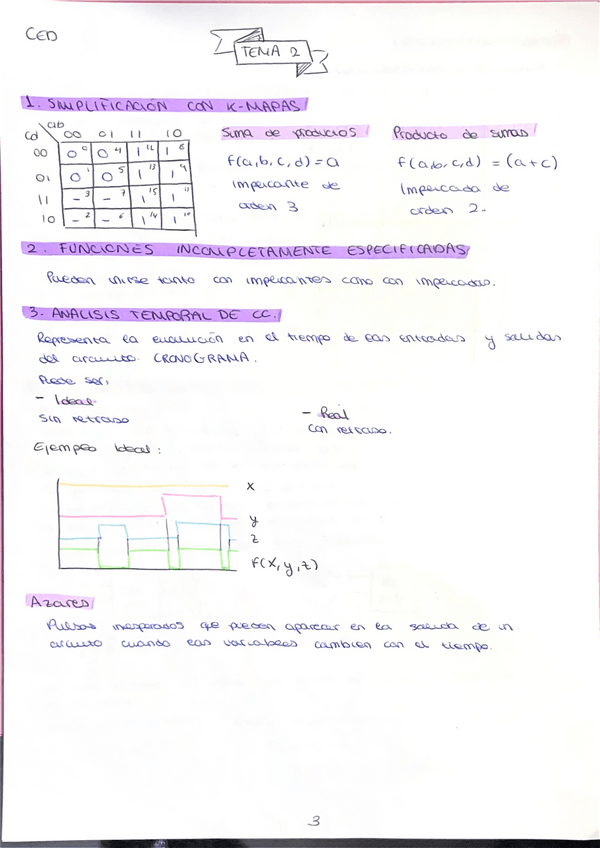 CED
TEMA 2
1. SIMPLIFICACIÓN CON K-MAPAS
ab
cd 00 01 11 10
00 0⁰ 0⁴ 1¹² 1⁸
01 0¹ 0⁵ 1¹³ 1⁹
11 -³ -⁷ 1¹⁵ 1¹¹
10 -² -⁶ 1¹⁴ 1¹⁰
Suma de productos
f(a,b,c,d) = a
Implicante de
orden 3
Producto de sumas
f(a,b,c,d) = (a+c)
Implicada de
orden 2.
2. FUNCIONES INCOMPLETAMENTE ESPECIFICADAS
Pueden unirse tanto con implicantes como con implicadas.
3. ANÁLISIS TEMPORAL DE CC.
Representa la evaluación en el tiempo de las entradas y salidas
del circuito. CRONOGRAMA.
Puede ser:
- Ideal
sin retraso
- Real
con retraso.
Ejemplo ideal:
x
y
z
F(x,y,z)
Azares
Pulsos inesperados que pueden aparecer en la salida de un
circuito cuando las variables cambien con el tiempo.
3